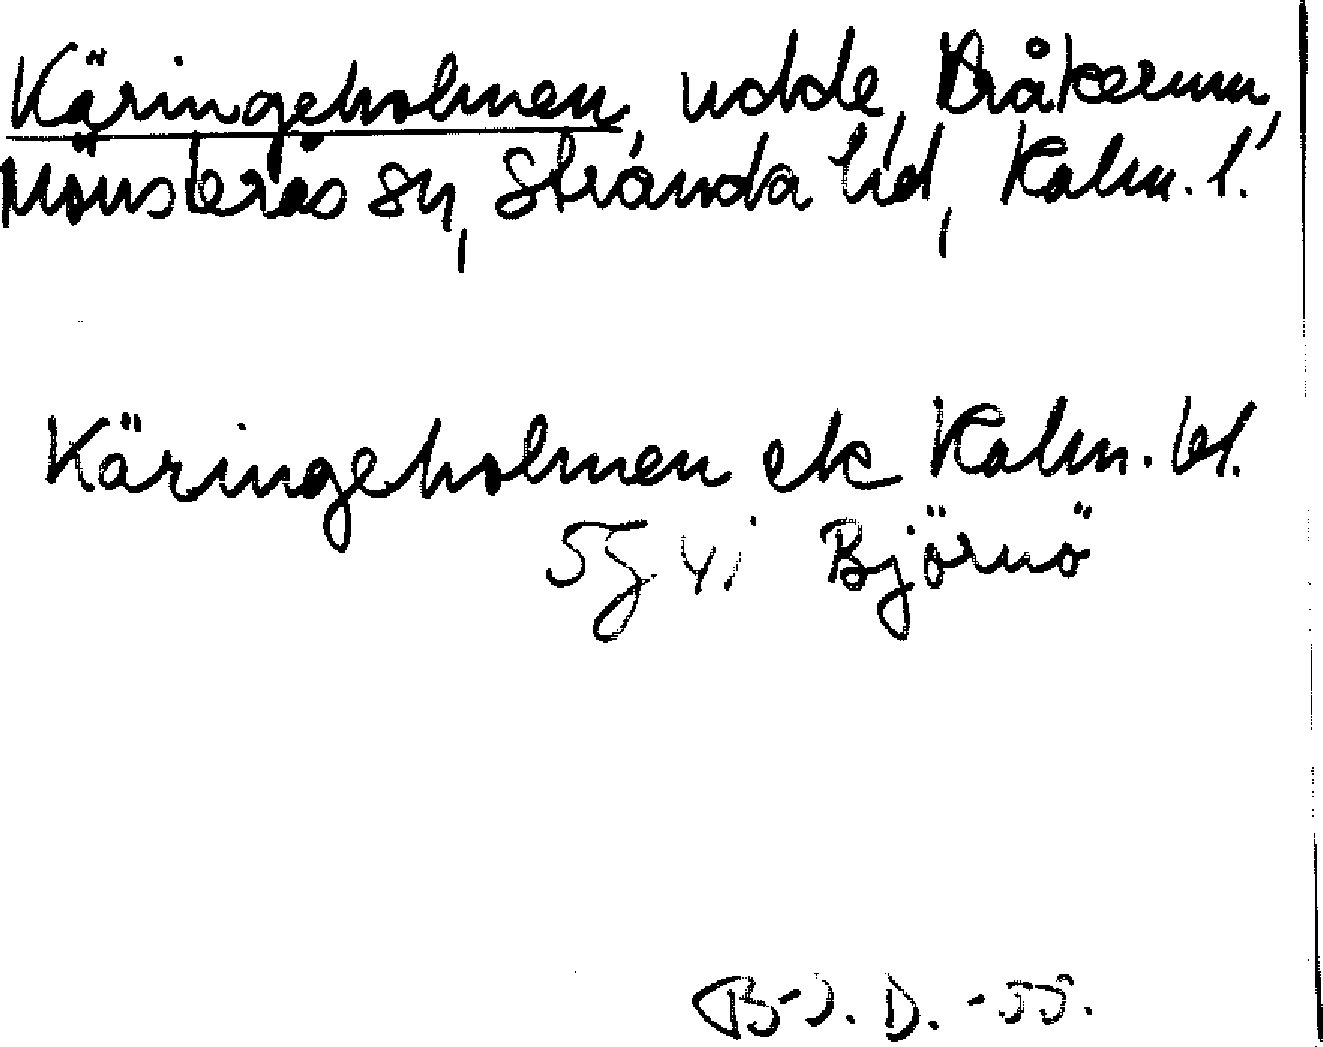 Käringeholmen, udde, Bråkerum,
Mönsterås sn, Stranda hd, Kalm. l.
Käringeholmen ek Kalm. bl.
5g 4i Björnö
B-J. D. -55.